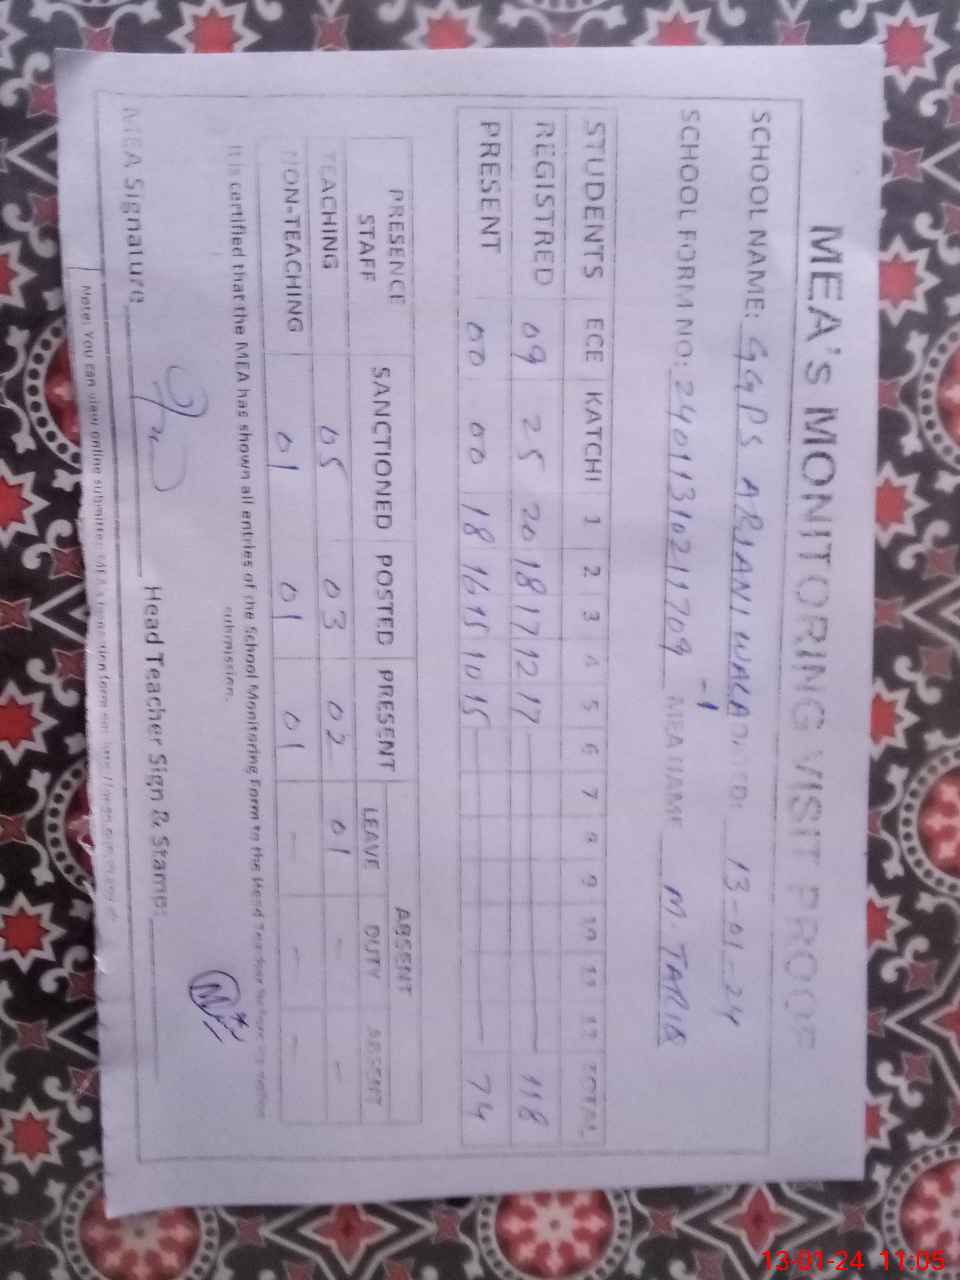 MEA's MONITORING VISIT PROOF
SCHOOL NAME: GGPS ARIANI WALA DATED: 13-01-24
-1
SCHOOL FORM NO: 24011310211709 MEA NAME M. TARIQ
STUDENTS ECE KATCHI 1 2 3 4 5 6 7 8 9 10 11 12 TOTAL
REGISTRED 09 25 20 18 17 12 17 118
PRESENT 00 00 18 16 15 10 15 74
PRESENCE STAFF SANCTIONED POSTED PRESENT ABSENT
LEAVE DUTY ABSENT
TEACHING 05 03 02 01 - -
NON-TEACHING 01 01 01 - - -
It is certified that the MEA has shown all entries of the School Monitoring Form to the Head Teacher before
submission.
MEA Signature Head Teacher Sign & Stamp:
Note: You can view online submitted MEA's
13-01-24 11:05